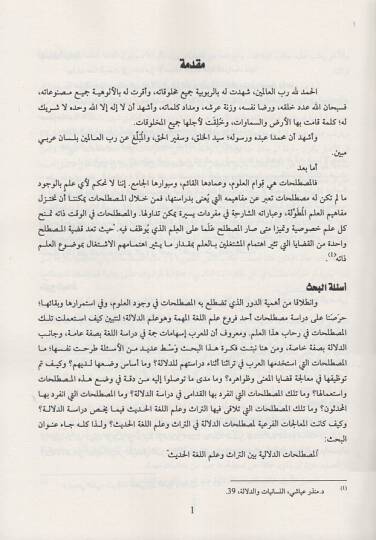 مقدمة
الحمد لله رب العالمين، شهدت له بالربوبية جميع مخلوقاته، وأقرت له بالألوهية جميع مصنوعاته،
فسبحان الله عدد خلقه، ورضا نفسه، وزنة عرشه، ومداد كلماته، وأشهد أن لا إله إلا الله وحده لا شريك
له؛ كلمة قامت بها الأرض والسماوات، وخُلِقَت لأجلها جميع المخلوقات.
وأشهد أن محمدا عبده ورسوله؛ سيد الخلق، وسفير الحق، والمبَلِّغ عن رب العالمين بلسان عربي
مبين.
أما بعد
فالمصطلحات هي قِوام العلوم، وعمادها القائم، وسوارها الجامع. إننا لا نحكم لأي علم بالوجود
ما لم تكن له مصطلحات تعبر عن مفاهيمه التي يُعنى بدراستها، فمن خلال المصطلحات يمكننا أن نختزل
مفاهيم العلم المطوّلة، وعباراته الشارحة في مفردات يسيرة يمكن تداولها. والمصطلحات في الوقت ذاته تمنح
كل علم خصوصية وتميزا حتى صار المصطلح عَلَما على العلم الذي يُوظف فيه. "حيث تعد قضية المصطلح
واحدة من القضايا التي تثير اهتمام المشتغلين بالعلم بمقدار ما يشير اهتمامهم الاشتغال بموضوع العلم
ذاته"(1).
أسئلة البحث
وانطلاقا من أهمية الدور الذي تضطلع به المصطلحات في وجود العلوم، وفي استمرارها وبقائها؛
حرصنا على دراسة مصطلحات أحد فروع علم اللغة المهمة وهو علم الدلالة؛ لتبيين كيف استعملت تلك
المصطلحات في رحاب هذا العلم. ومعروف أن للعرب إسهامات جمة في دراسة اللغة بصفة عامة، وجانب
الدلالة بصفة خاصة، ومن هنا نبتت فكرة هذا البحث وَسْط عديد من الأسئلة طرحت نفسها؛ ما
المصطلحات التي استخدمها العرب في تراثنا أثناء دراستهم للدلالة؟ وما أساس وضعها لديهم؟ وكيف تم
توظيفها في معالجة قضايا المعنى وظواهره؟ وما مدى ما توصلوا إليه من دقة في وضع هذه المصطلحات
واستعمالها؟ وما تلك المصطلحات التي انفرد بها القدامى في دراسة الدلالة؟ وما المصطلحات التي انفرد بها
المحدثون؟ وما تلك المصطلحات التي تلاقى فيها التراث وعلم اللغة الحديث فيما يخص دراسة الدلالة؟
وكيف كانت المعالجات الفرعية لمصطلحات الدلالة في التراث وعلم اللغة الحديث؟ ولذا كله جاء عنوان
البحث:
"المصطلحات الدلالية بين التراث وعلم اللغة الحديث"
(1) د.منذر عياشي، اللسانيات والدلالة، 39.
1